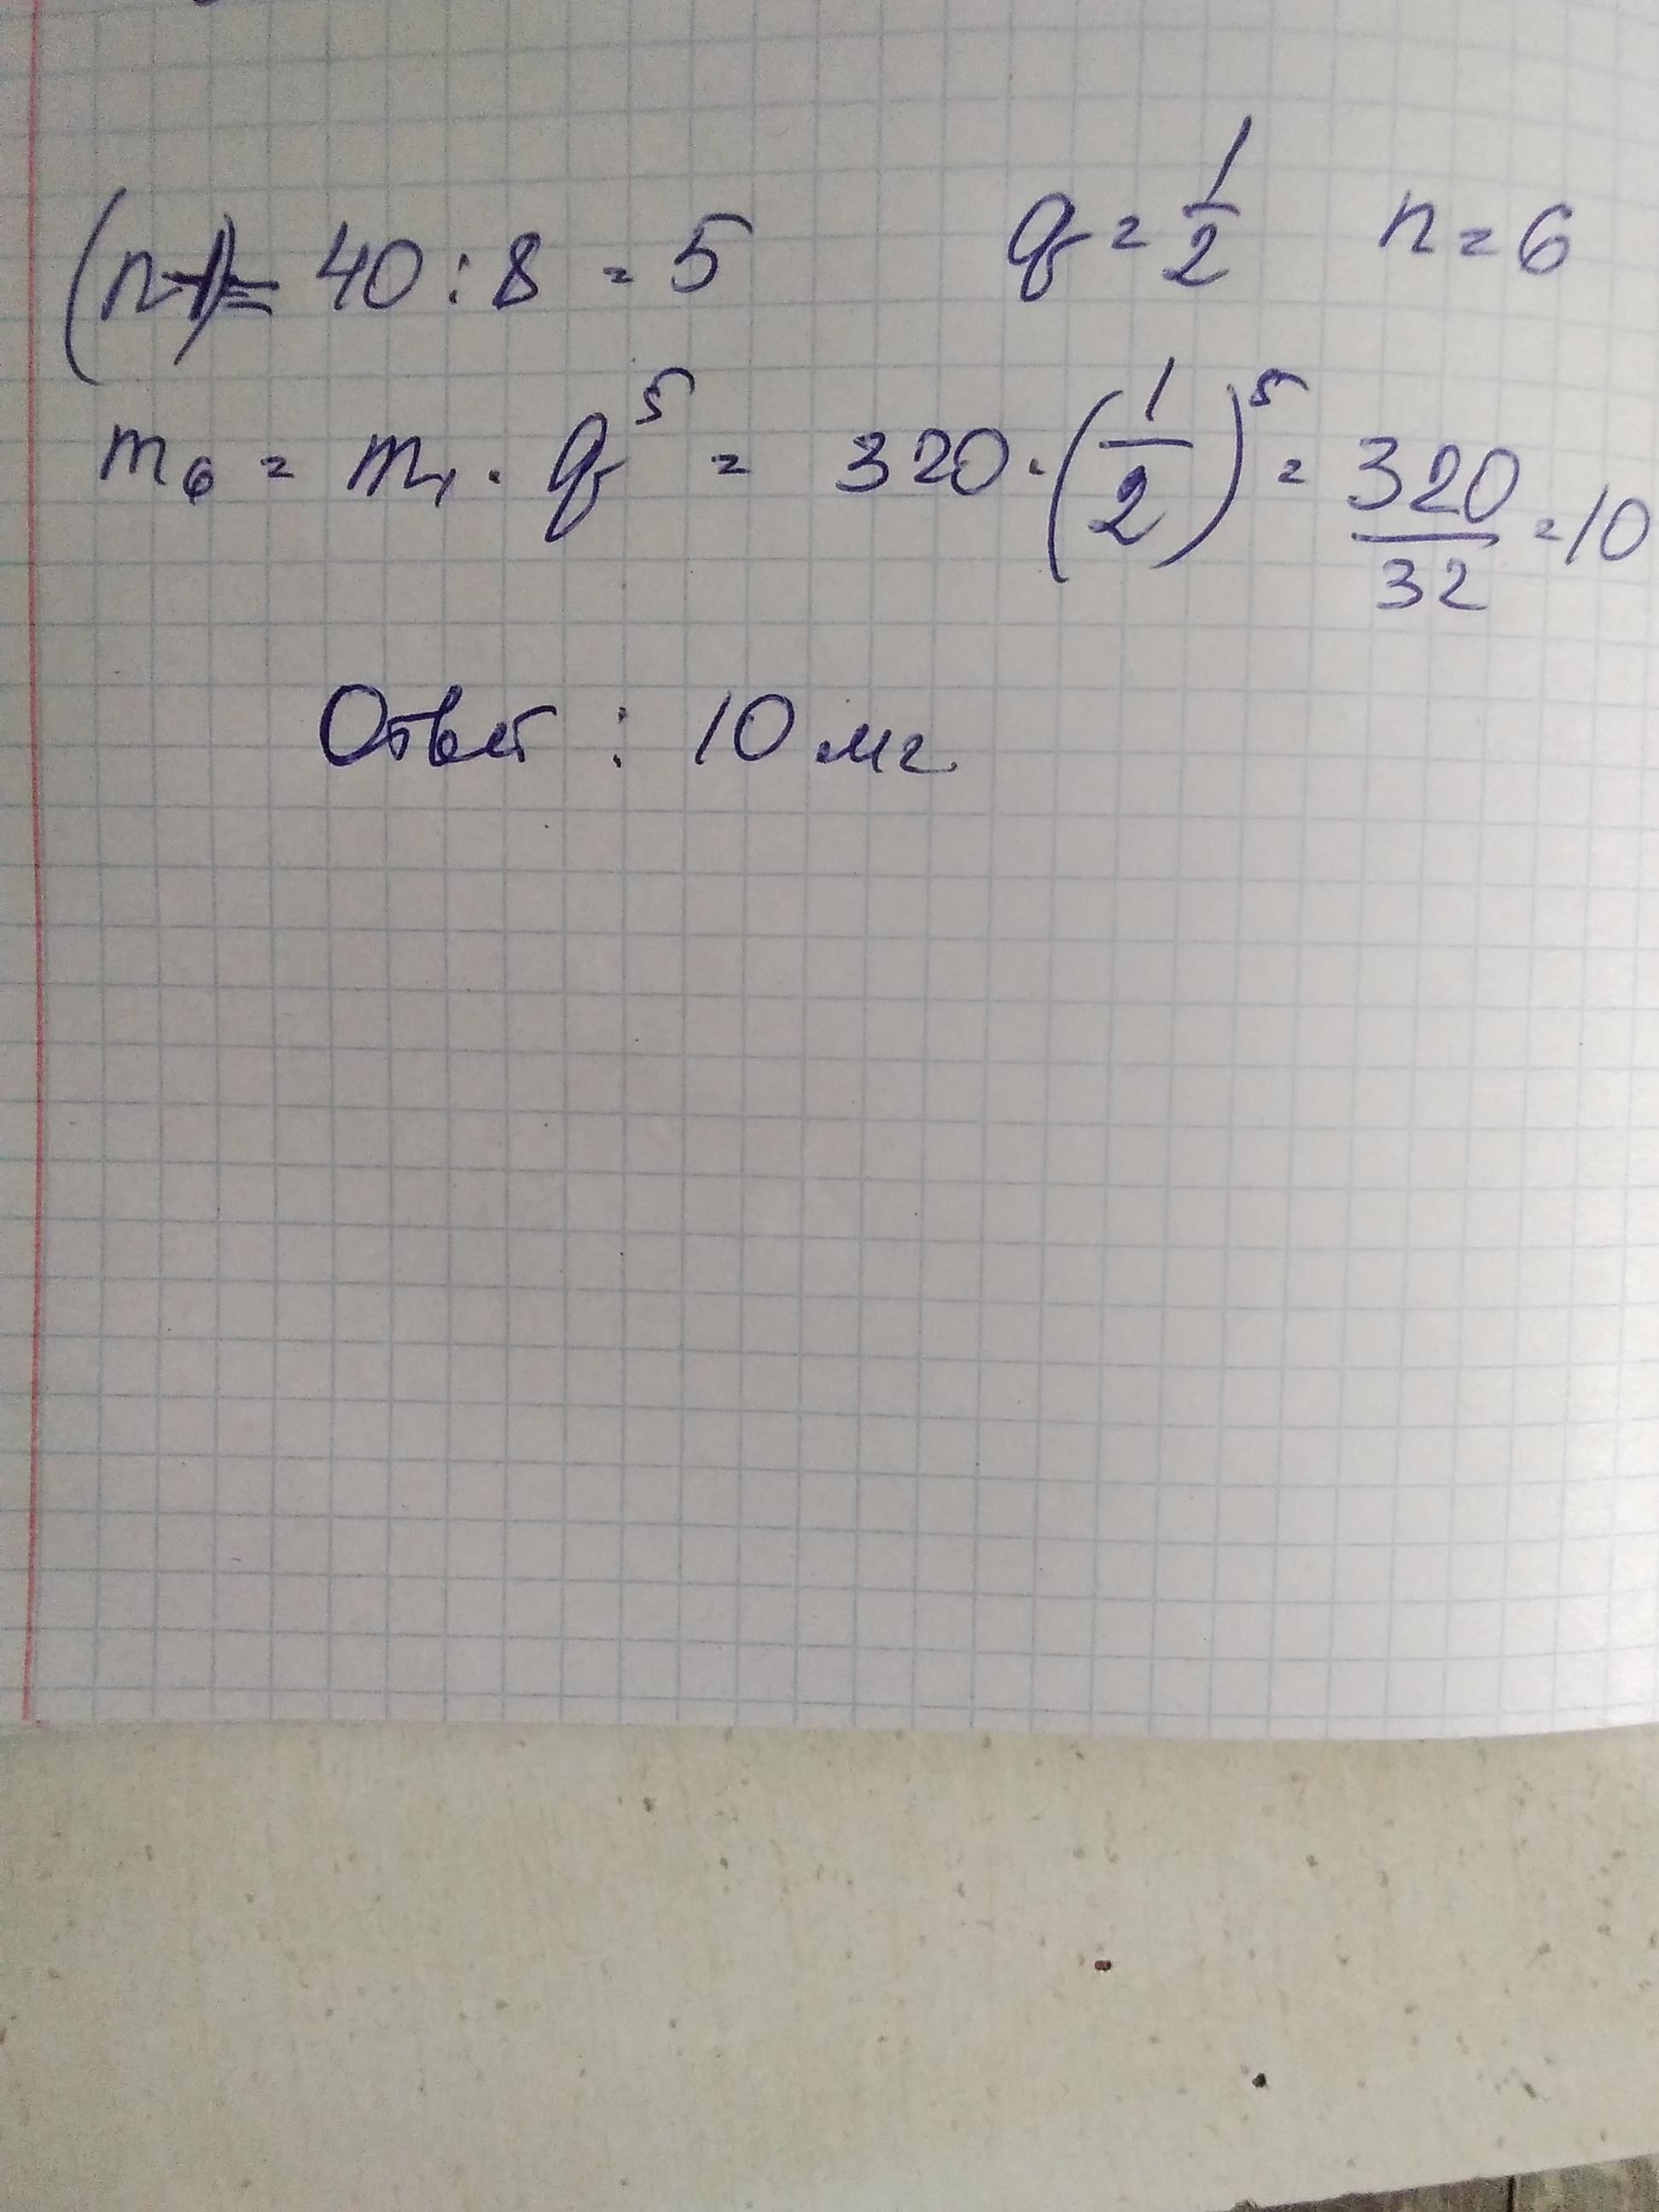 (n-1)= 40:8 = 5 q = 1/2 n = 6
m₆ = m₁ · q⁵ = 320 · (1/2)⁵ = 320/32 = 10
Ответ : 10 мг